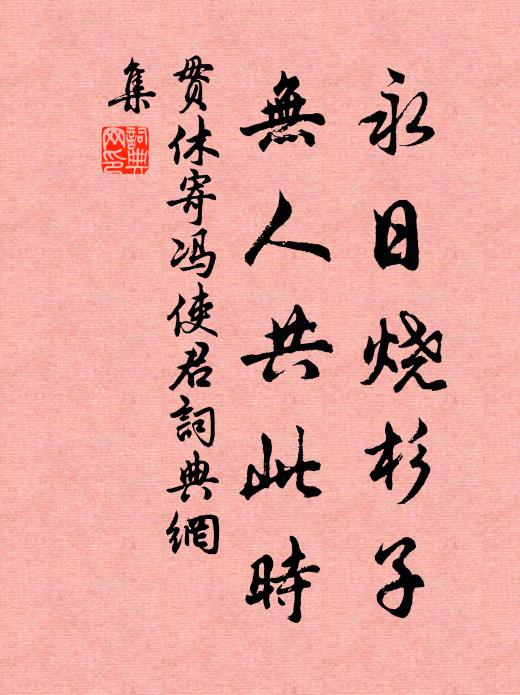 永日烧杉子
無人共此時
贯休寄冯使君詞典網
集
詞典
网印